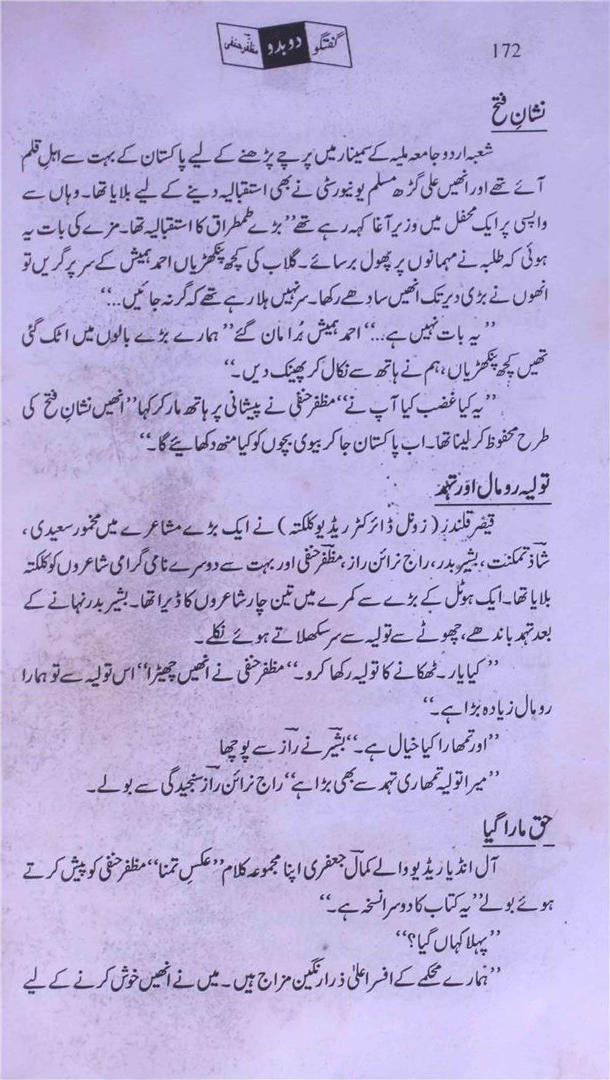 گفتگو دو بدو مظفر حنفی
172
نشانِ فتح
شعبہ اردو جامعہ ملیہ کے سمینار میں پرچے پڑھنے کے لیے پاکستان کے بہت سے اہلِ قلم
آئے تھے اور انھیں علی گڑھ مسلم یونیورسٹی نے بھی استقبالیہ دینے کے لیے بلایا تھا۔ وہاں سے
واپسی پر ایک محفل میں وزیر آغا کہہ رہے تھے ’’بڑے طمطراق کا استقبالیہ تھا۔ مزے کی بات یہ
ہوئی کہ طلبہ نے مہمانوں پر پھول برسائے۔ گلاب کی کچھ پنکھڑیاں احمد ہمیش کے سر پر گریں تو
انھوں نے بڑی دیر تک انھیں سادھے رکھا۔ سر نہیں ہلا رہے تھے کہ گر نہ جائیں...‘‘
’’یہ بات نہیں ہے...‘‘ احمد ہمیش بُرا مان گئے ’’ہمارے بڑے بالوں میں اٹک گئی
تھیں کچھ پنکھڑیاں، ہم نے ہاتھ سے نکال کر پھینک دیں۔‘‘
’’یہ کیا غضب کیا آپ نے‘‘ مظفر حنفی نے پیشانی پر ہاتھ مار کر کہا ’’انھیں نشانِ فتح کی
طرح محفوظ کر لینا تھا۔ اب پاکستان جا کر بیوی بچوں کو کیا منھ دکھایئے گا۔‘‘
تولیہ رومال اور تہمد
قیصر قلندر (زونل ڈائرکٹر ریڈیو کلکتہ) نے ایک بڑے مشاعرے میں مخمور سعیدی،
شاذ تمکنت، بشیر بدر، راج نرائن راز، مظفر حنفی اور بہت سے دوسرے نامی گرامی شاعروں کو کلکتہ
بلایا تھا۔ ایک ہوٹل کے بڑے سے کمرے میں تین چار شاعروں کا ڈیرا تھا۔ بشیر بدر نہانے کے
بعد تہمد باندھے، چھوٹے سے تولیہ سے سر سکھلاتے ہوئے نکلے۔
’’کیا یار۔ ٹھکانے کا تولیہ رکھا کرو۔‘‘ مظفر حنفی نے انھیں چھیڑا ’’اس تولیہ سے تو ہمارا
رومال زیادہ بڑا ہے۔‘‘
’’اور تمھارا کیا خیال ہے۔‘‘ بشیر نے راز سے پوچھا
’’میرا تولیہ تمھاری تہمد سے بھی بڑا ہے‘‘ راج نرائن راز سنجیدگی سے بولے۔
حق مارا گیا
آل انڈیا ریڈیو والے کمال جعفری اپنا مجموعہ کلام ’’عکسِ تمنا‘‘ مظفر حنفی کو پیش کرتے
ہوئے بولے ’’یہ کتاب کا دوسرا نسخہ ہے۔‘‘
’’پہلا کہاں گیا؟‘‘
’’ہمارے محکمے کے افسر اعلیٰ ذرا رنگین مزاج ہیں۔ میں نے انھیں خوش کرنے کے لیے